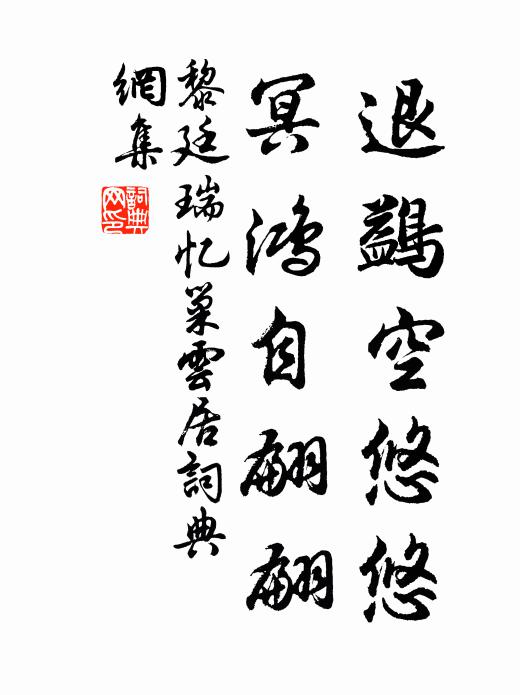 退鷁空悠悠
冥鴻自翩翩
黎廷瑞忆巢雲居詞典
網集
詞典
网印